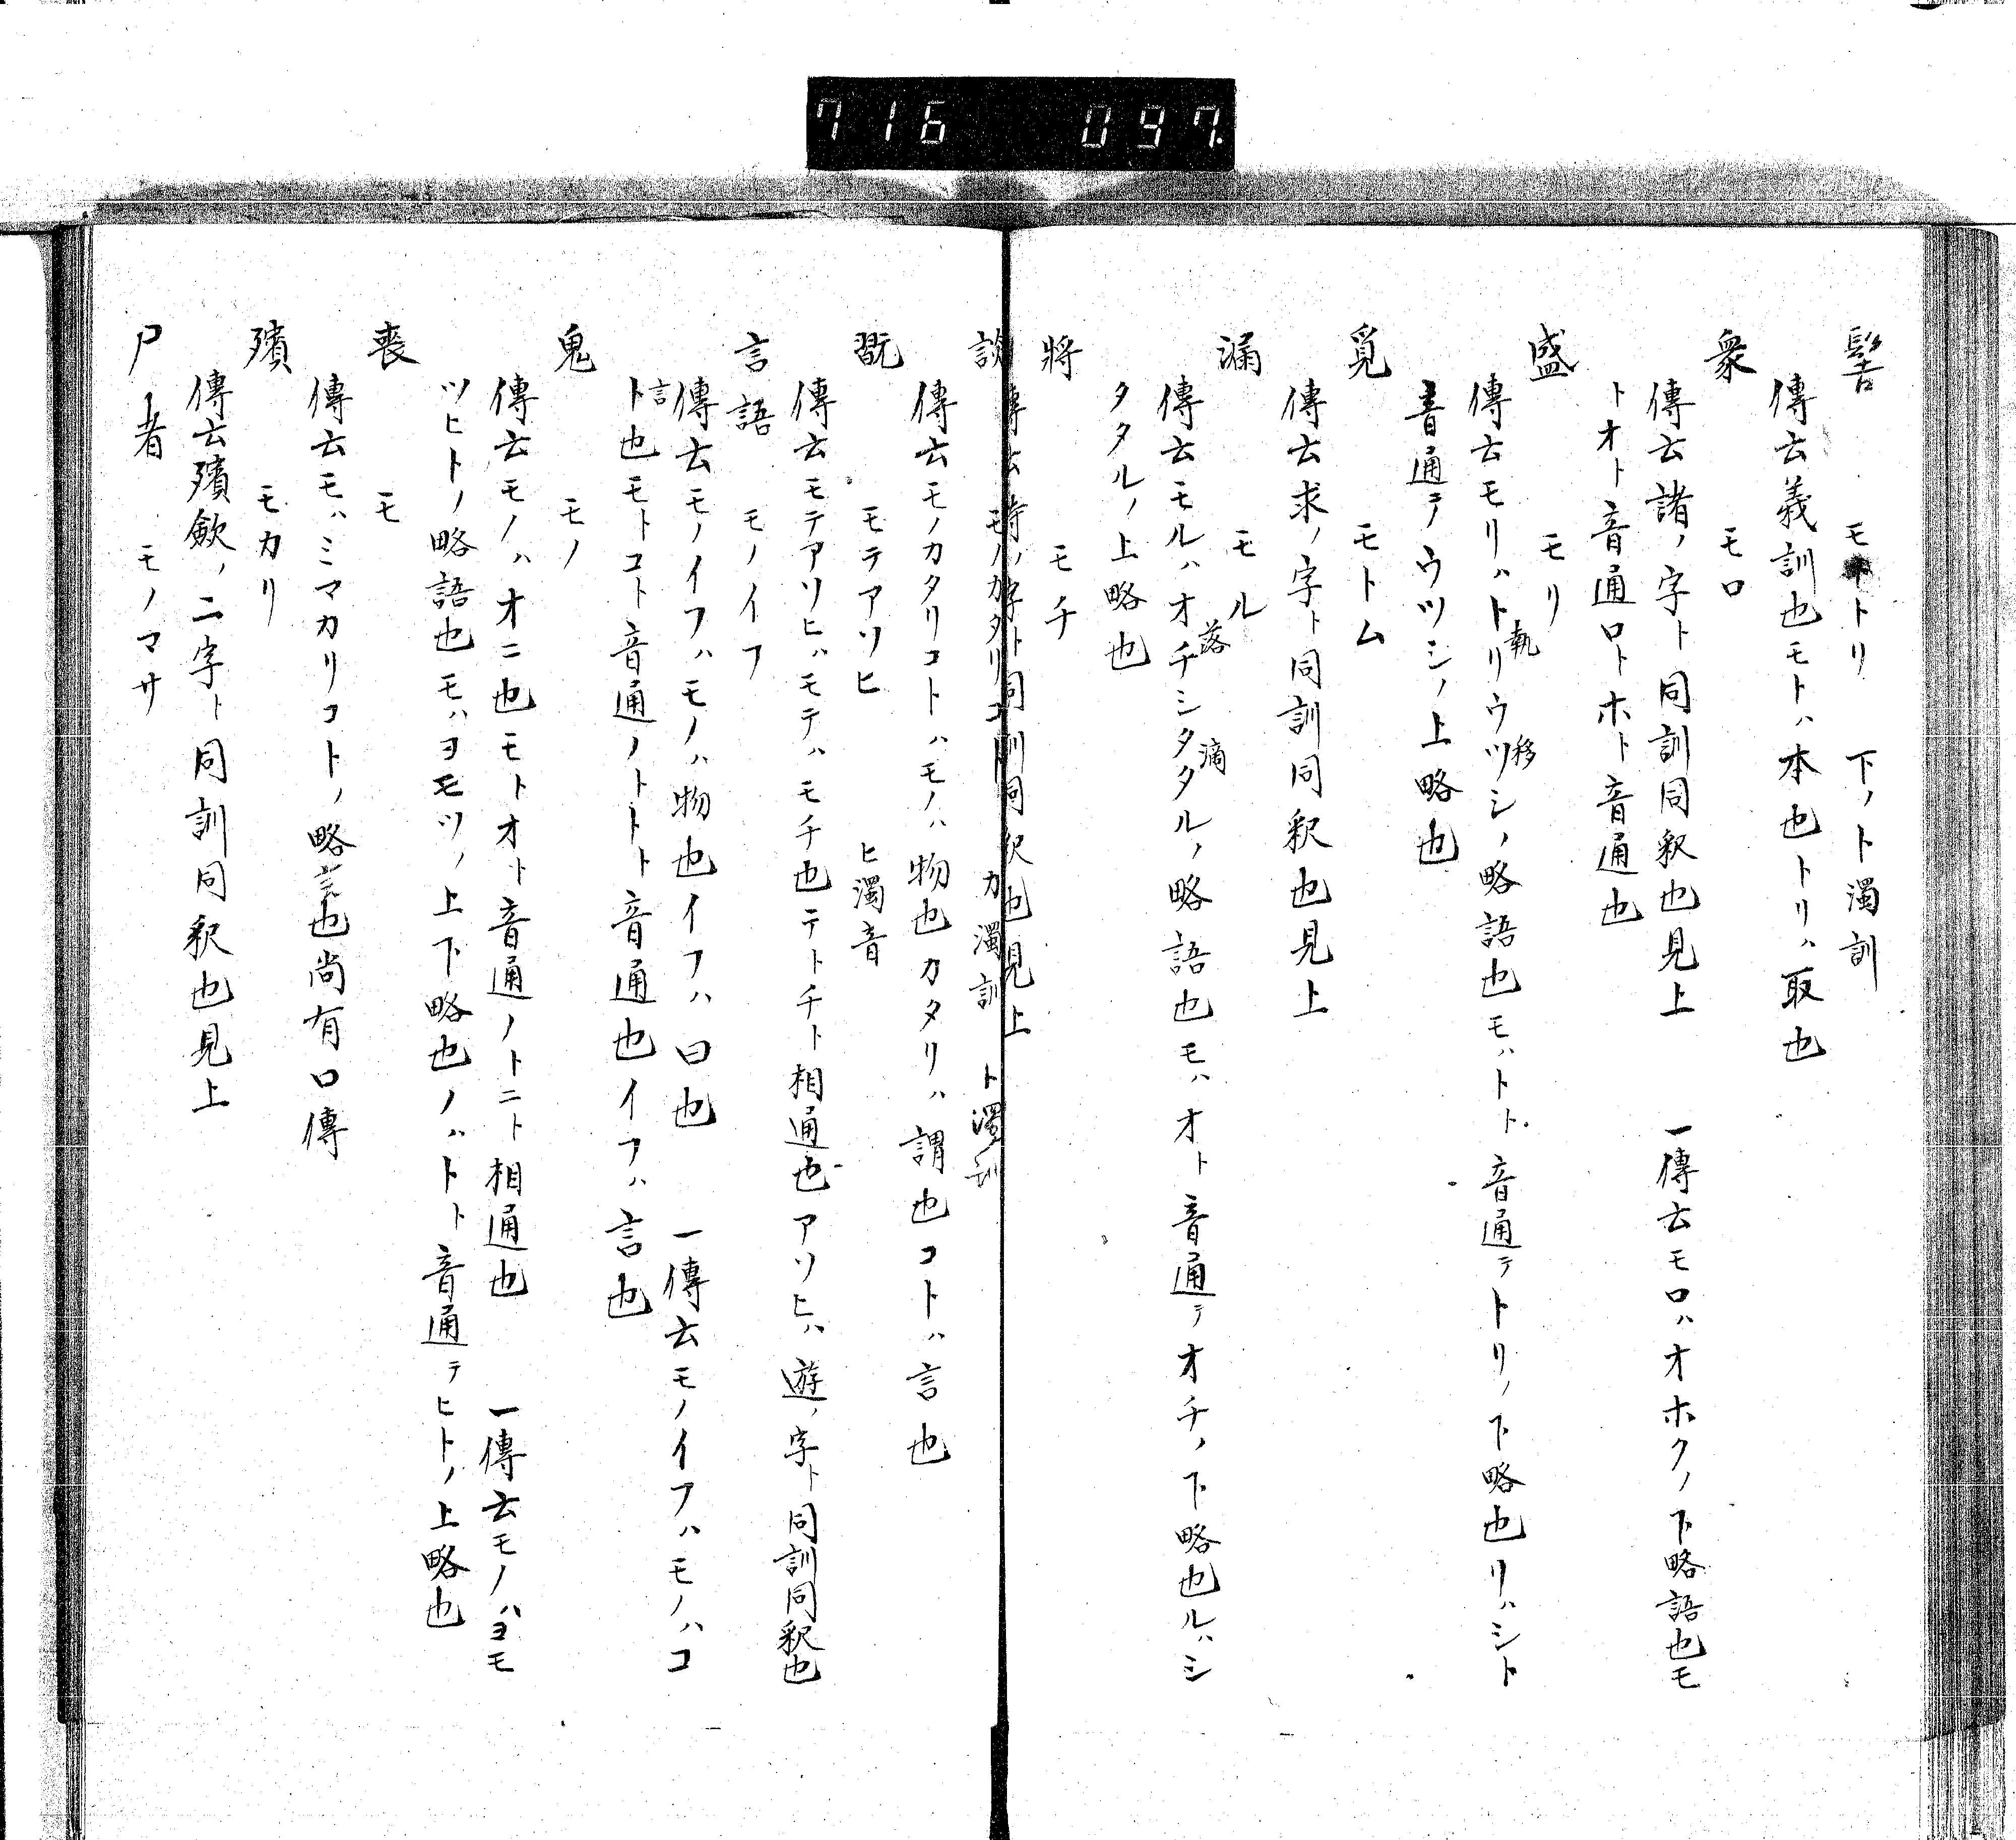 716 097.
髻 モトトリ 下ノト濁訓
傳云義訓也モトハ本也トリハ取也
衆 モロ
傳云諸ノ字ト同訓同釈也見上 一傳云モロハオホクノ下略語也モ
トオト音通ロトホト音通也
盛 モリ
傳云モリハトリ執ウツシ移ノ略語也モハトト音通テトリノ下略也リハシト
音通テウツシノ上略也
覓 モトム
傳云求ノ字ト同訓同釈也見上
漏 モル
傳云モルハオチ落シタタル滴ノ略語也モハオト音通テオチノ下略也ルハシ
タタルノ上略也
將 モチ
傳云持ノ字ト同訓同釈也見上
談 モノカタリコト カ濁訓 ト濁訓
傳云モノカタリコトハモノハ物也カタリハ謂也コトハ言也
翫 モテアソヒ ヒ濁音
傳云モテアソヒハモテハモチ也テトチト相通也アソヒハ遊ノ字ト同訓同釈也
言語 モノイフ
傳云モノイフハモノハ物也イフハ曰也 一傳云モノイフハモノハコ
ト言也モトコト音通ノトトト音通也イフハ言也
鬼 モノ
傳云モノハオニ也モトオト音通ノトニト相通也 一傳云モノハヨモ
ツヒトノ略語也モハヨモツノ上下略也ノハトト音通テヒトノ上略也
喪 モ
傳云モハミマカリコトノ略言也尚有口傳
殯 モカリ
傳云殯斂ノ二字ト同訓同釈也見上
尸者 モノマサ